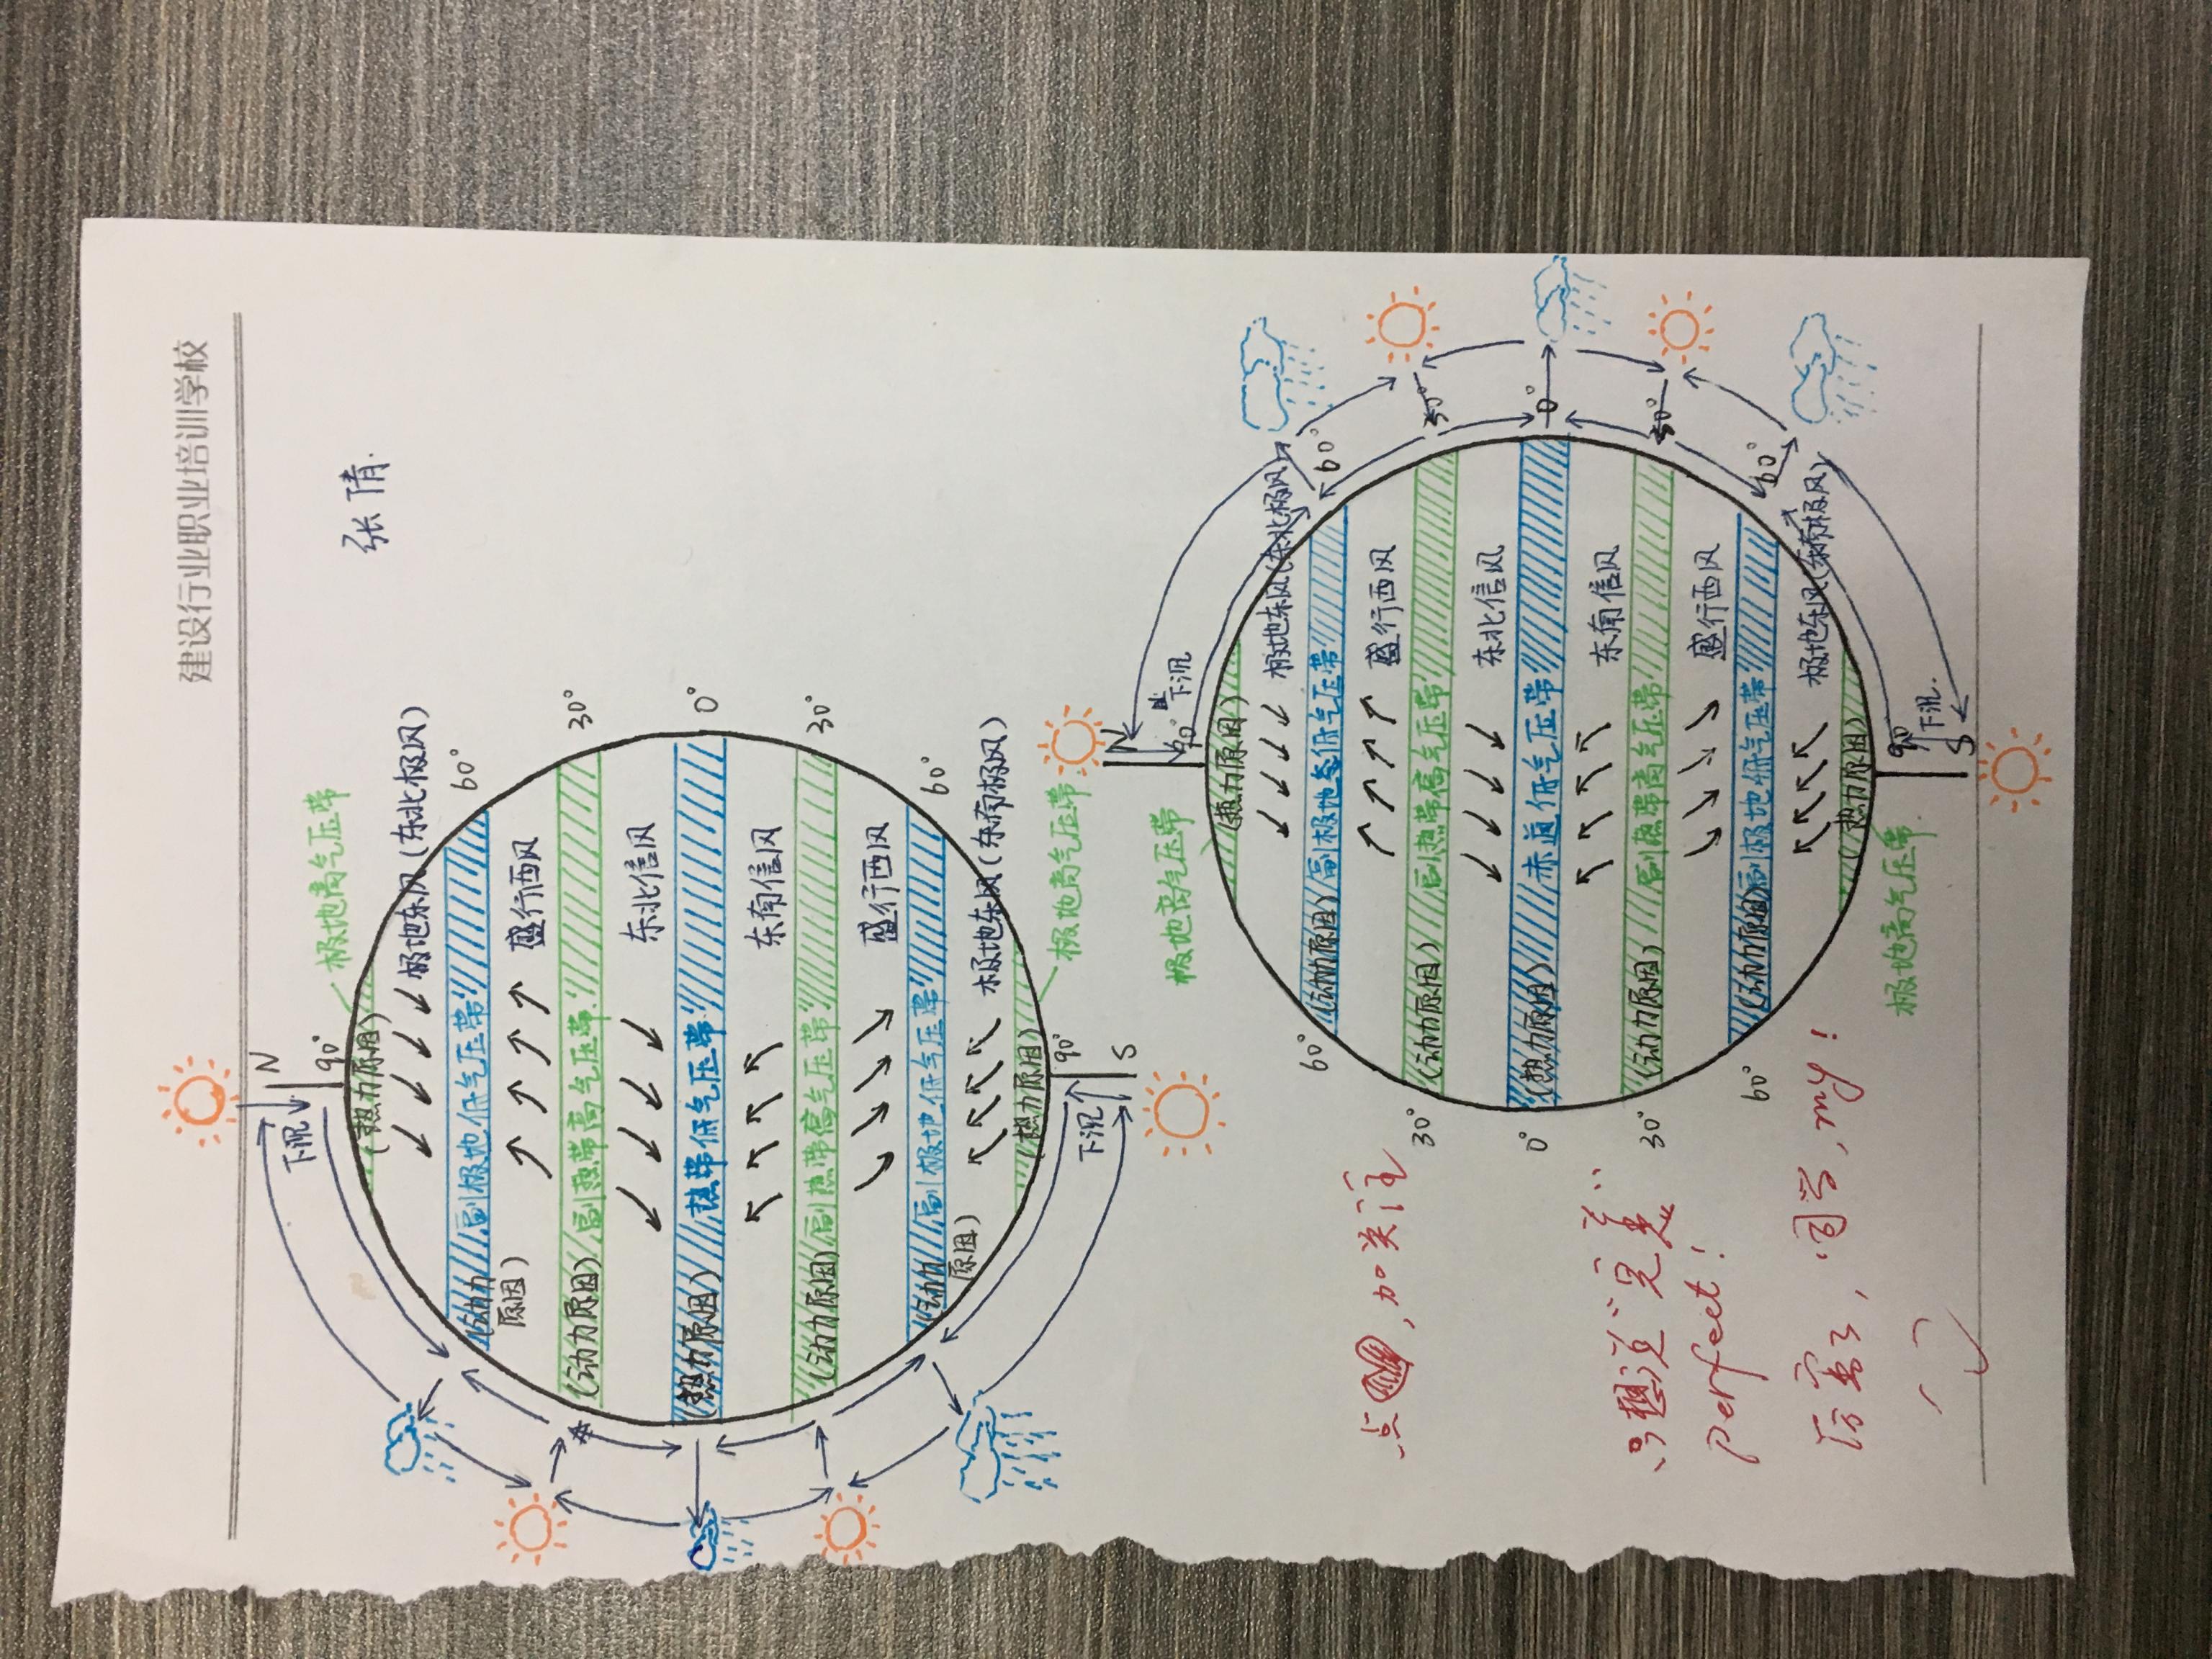 建设行业职业培训学校
张倩.
N
90°
下沉
极地高气压带
(热力原因)
极地东风(东北极风)
60°
副极地低气压带
(动力
原因)
盛行西风
30°
(动力原因)
副热带高气压带
东北信风
0°
(热力原因)
热带低气压带
东南信风
30°
(动力原因)
副热带高气压带
盛行西风
60°
(动力
原因)
副极地低气压带
极地东风(东南极风)
极地高气压带
(热力原因)
90°
下沉
S
N
90°
下沉
极地高气压带
(热力原因)
极地东风(东北极风)
60°
60°
(动力原因)
副极地低气压带
盛行西风
30°
30°
(动力原因)
副热带高气压带
东北信风
0°
0°
(热力原因)
赤道低气压带
东南信风
30°
30°
(动力原因)
副热带高气压带
盛行西风
60°
60°
(动力原因)
副极地低气压带
极地东风(东南极风)
(热力原因)
极地高气压带.
90°
下沉.
S
点, 加关注
只想说"完美"
perfect!
厉害了, 同学, my!